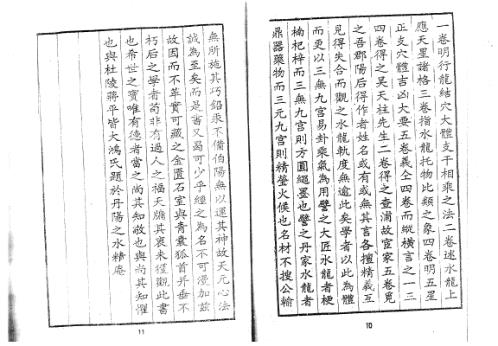 一卷明行龍結穴大體支干相乘之法二卷述水龍上
應天星諸格三卷指水龍托物比類之象四卷明五星
正支穴體吉凶大要五卷義仝四卷而縱橫言之一三
四卷得之吳天柱先生二卷得之查浦故宦家五卷覓
之吾郡陽后得作者姓名或有或無其言各擅精義互
見得失合而觀之水龍軌度無逾此矣學者以此為體
而更以三無九宮易卦乘氣為用譬之大匠水龍者梗
楠杞梓而三無九宮則方圓繩墨也譬之丹家水龍者
鼎器藥物而三元九宮則精螢火候也名材不搜公輸
10
無所施其巧鉛汞不備伯陽無以運其神故天元心法
誠為至矣而是書又曷可少乎纏之為名不可漫加茲
故因而不革實可藏之金匱石室與青囊狐首并垂不
朽后之學者苟非有過人之福天牖其衷未獲觀此書
也希世之寶唯有德者當之尚其知敬也與尚其知懼
也與杜陵蔣平皆大鴻氏題於丹陽之水精庵
11